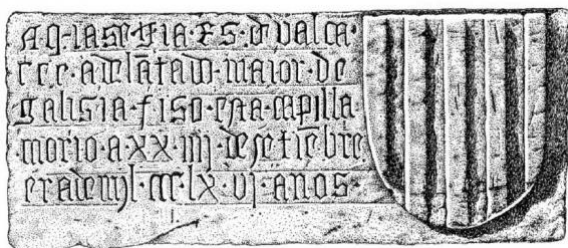 Aq·iase·gia·fs·d·valca·
rce·adelatado·maior·de
galisia·fiso·esta·capilla
morio·a·xx·iiij·de·setiebre
era·de·mjl·ccc·lx·vj·anos·